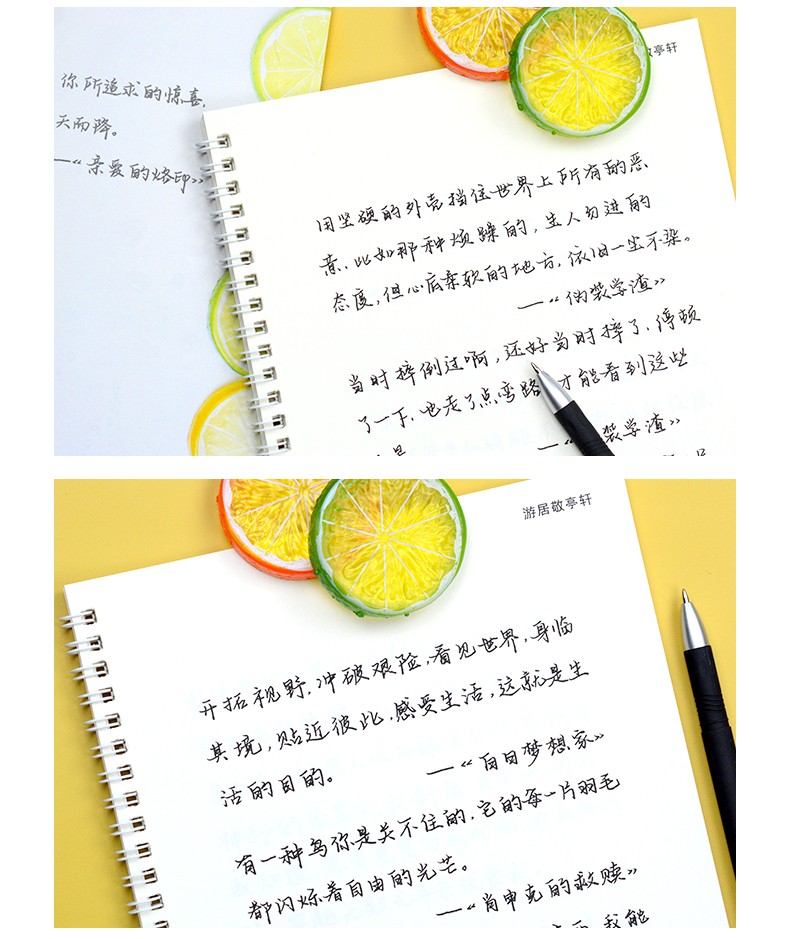 你所追求的惊喜,
天而降。
—“亲爱的烙印》
敬亭轩
用坚硬的外壳挡住世界上所有的恶
意、比如那种烦躁的,生人勿进的
态度,但心底柔软的地方,依旧一尘不染。
—“伪装学渣》
当时摔倒过啊,还好当时摔了、停顿
了一下、也走了点弯路 才能看到这些
—“ 装学渣》
游居敬亭轩
开拓视野,冲破艰险,看见世界,身临
其境,贴近彼此,感受生活,这就是生
活的目的。
—“白日梦想家》
有一种鸟你是关不住的,它的每一片羽毛
都闪烁着自由的光芒。
—“肖申克的救赎》
我能